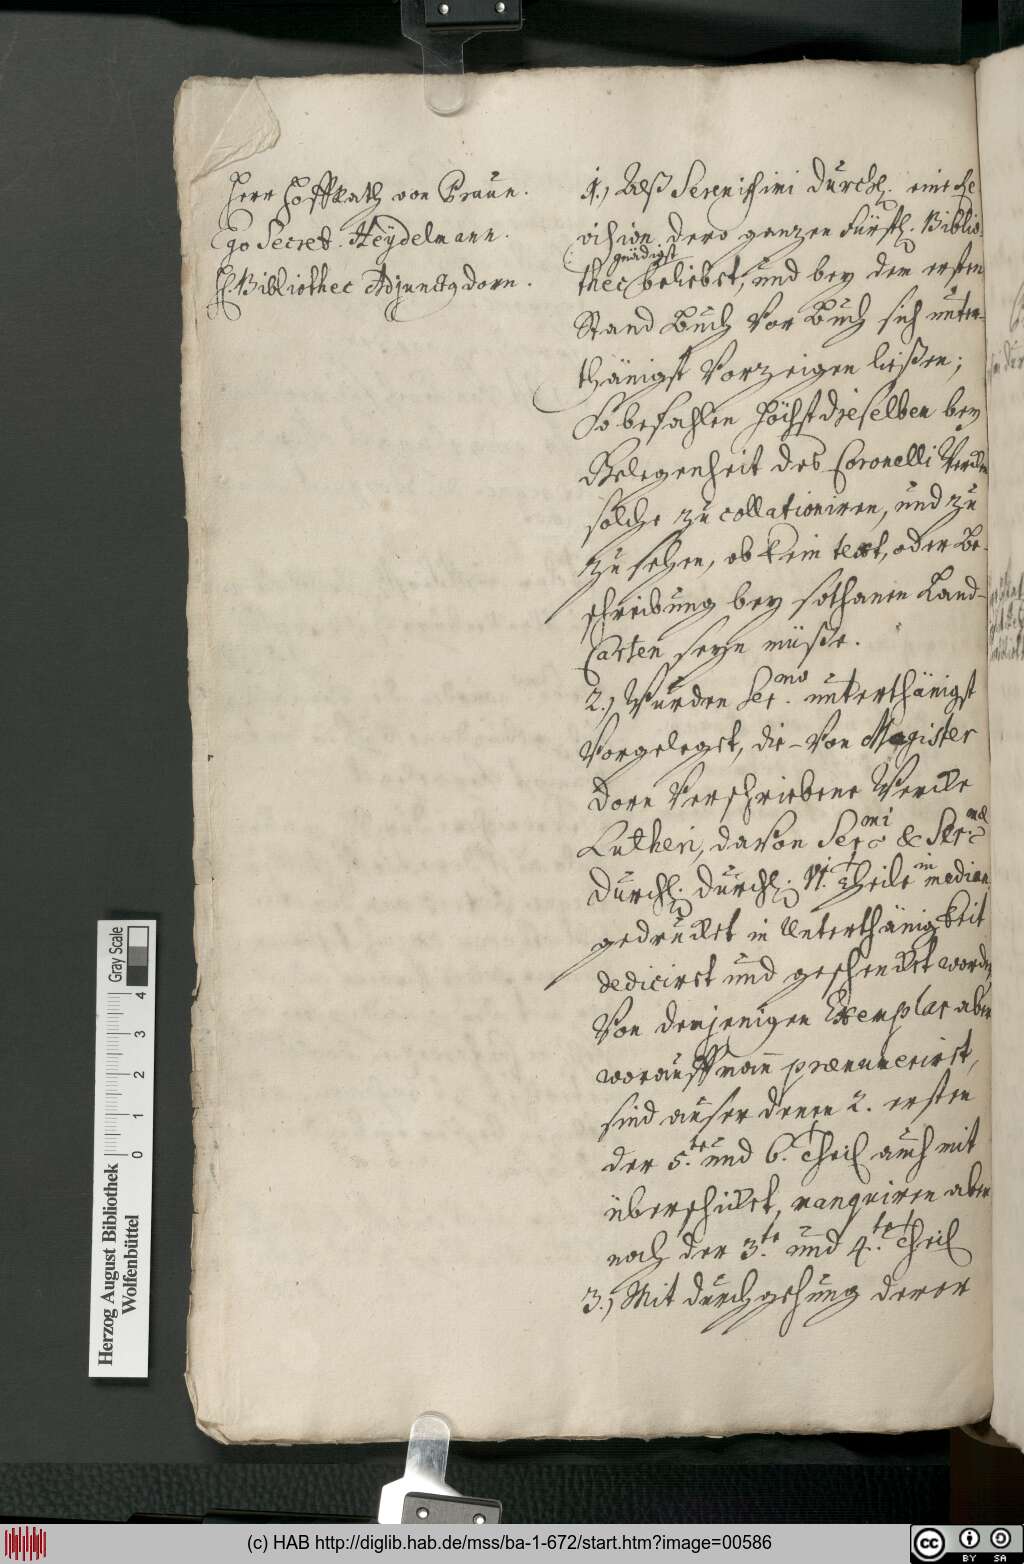 Herr Hoffrath von Praun.
Ego Secret. Heÿdelmann.
H. Bibliothec Adjunctg dorn.
1.) Alß Serenissimi Durchl. eine Re
vision dero ganzen Fürstl. Biblio
gnädigst
thec beliebet, und bey dem ersten
Stand Buch vor Buch sich unter-
thänigst vorzeigen ließen;
So befahlen Höchst dieselben bey
Gelegenheit des Coronelli Wercken
solche zu collationiren, und zu
zu sehen, ob kein text, oder Be-
schreibung bey sothanen Land-
Carten seyn müße.
2.) Wurden Ser.mo unterthänigst
vorgeleget, die von Magister
Dorn verschriebene Wercke
Lutheri, davon Ser.mi & Ser.mæ
Durchl. Durchl. VI. Theile in median
gedrucket in Unterthänigkeit
dediciret und geschencket worden
Von demjenigen Exemplar aber
worauff man prænumerirt,
sind auser denen 2. ersten
der 5.te und 6. Theil auch mit
überschicket, manquiren aber
noch der 3.te und 4.te Theil
3.) Mit durchgehung derer
Herzog August Bibliothek
Wolfenbüttel
0 1 2 3 4
Gray Scale
(c) HAB http://diglib.hab.de/mss/ba-1-672/start.htm?image=00586
cc BY SA